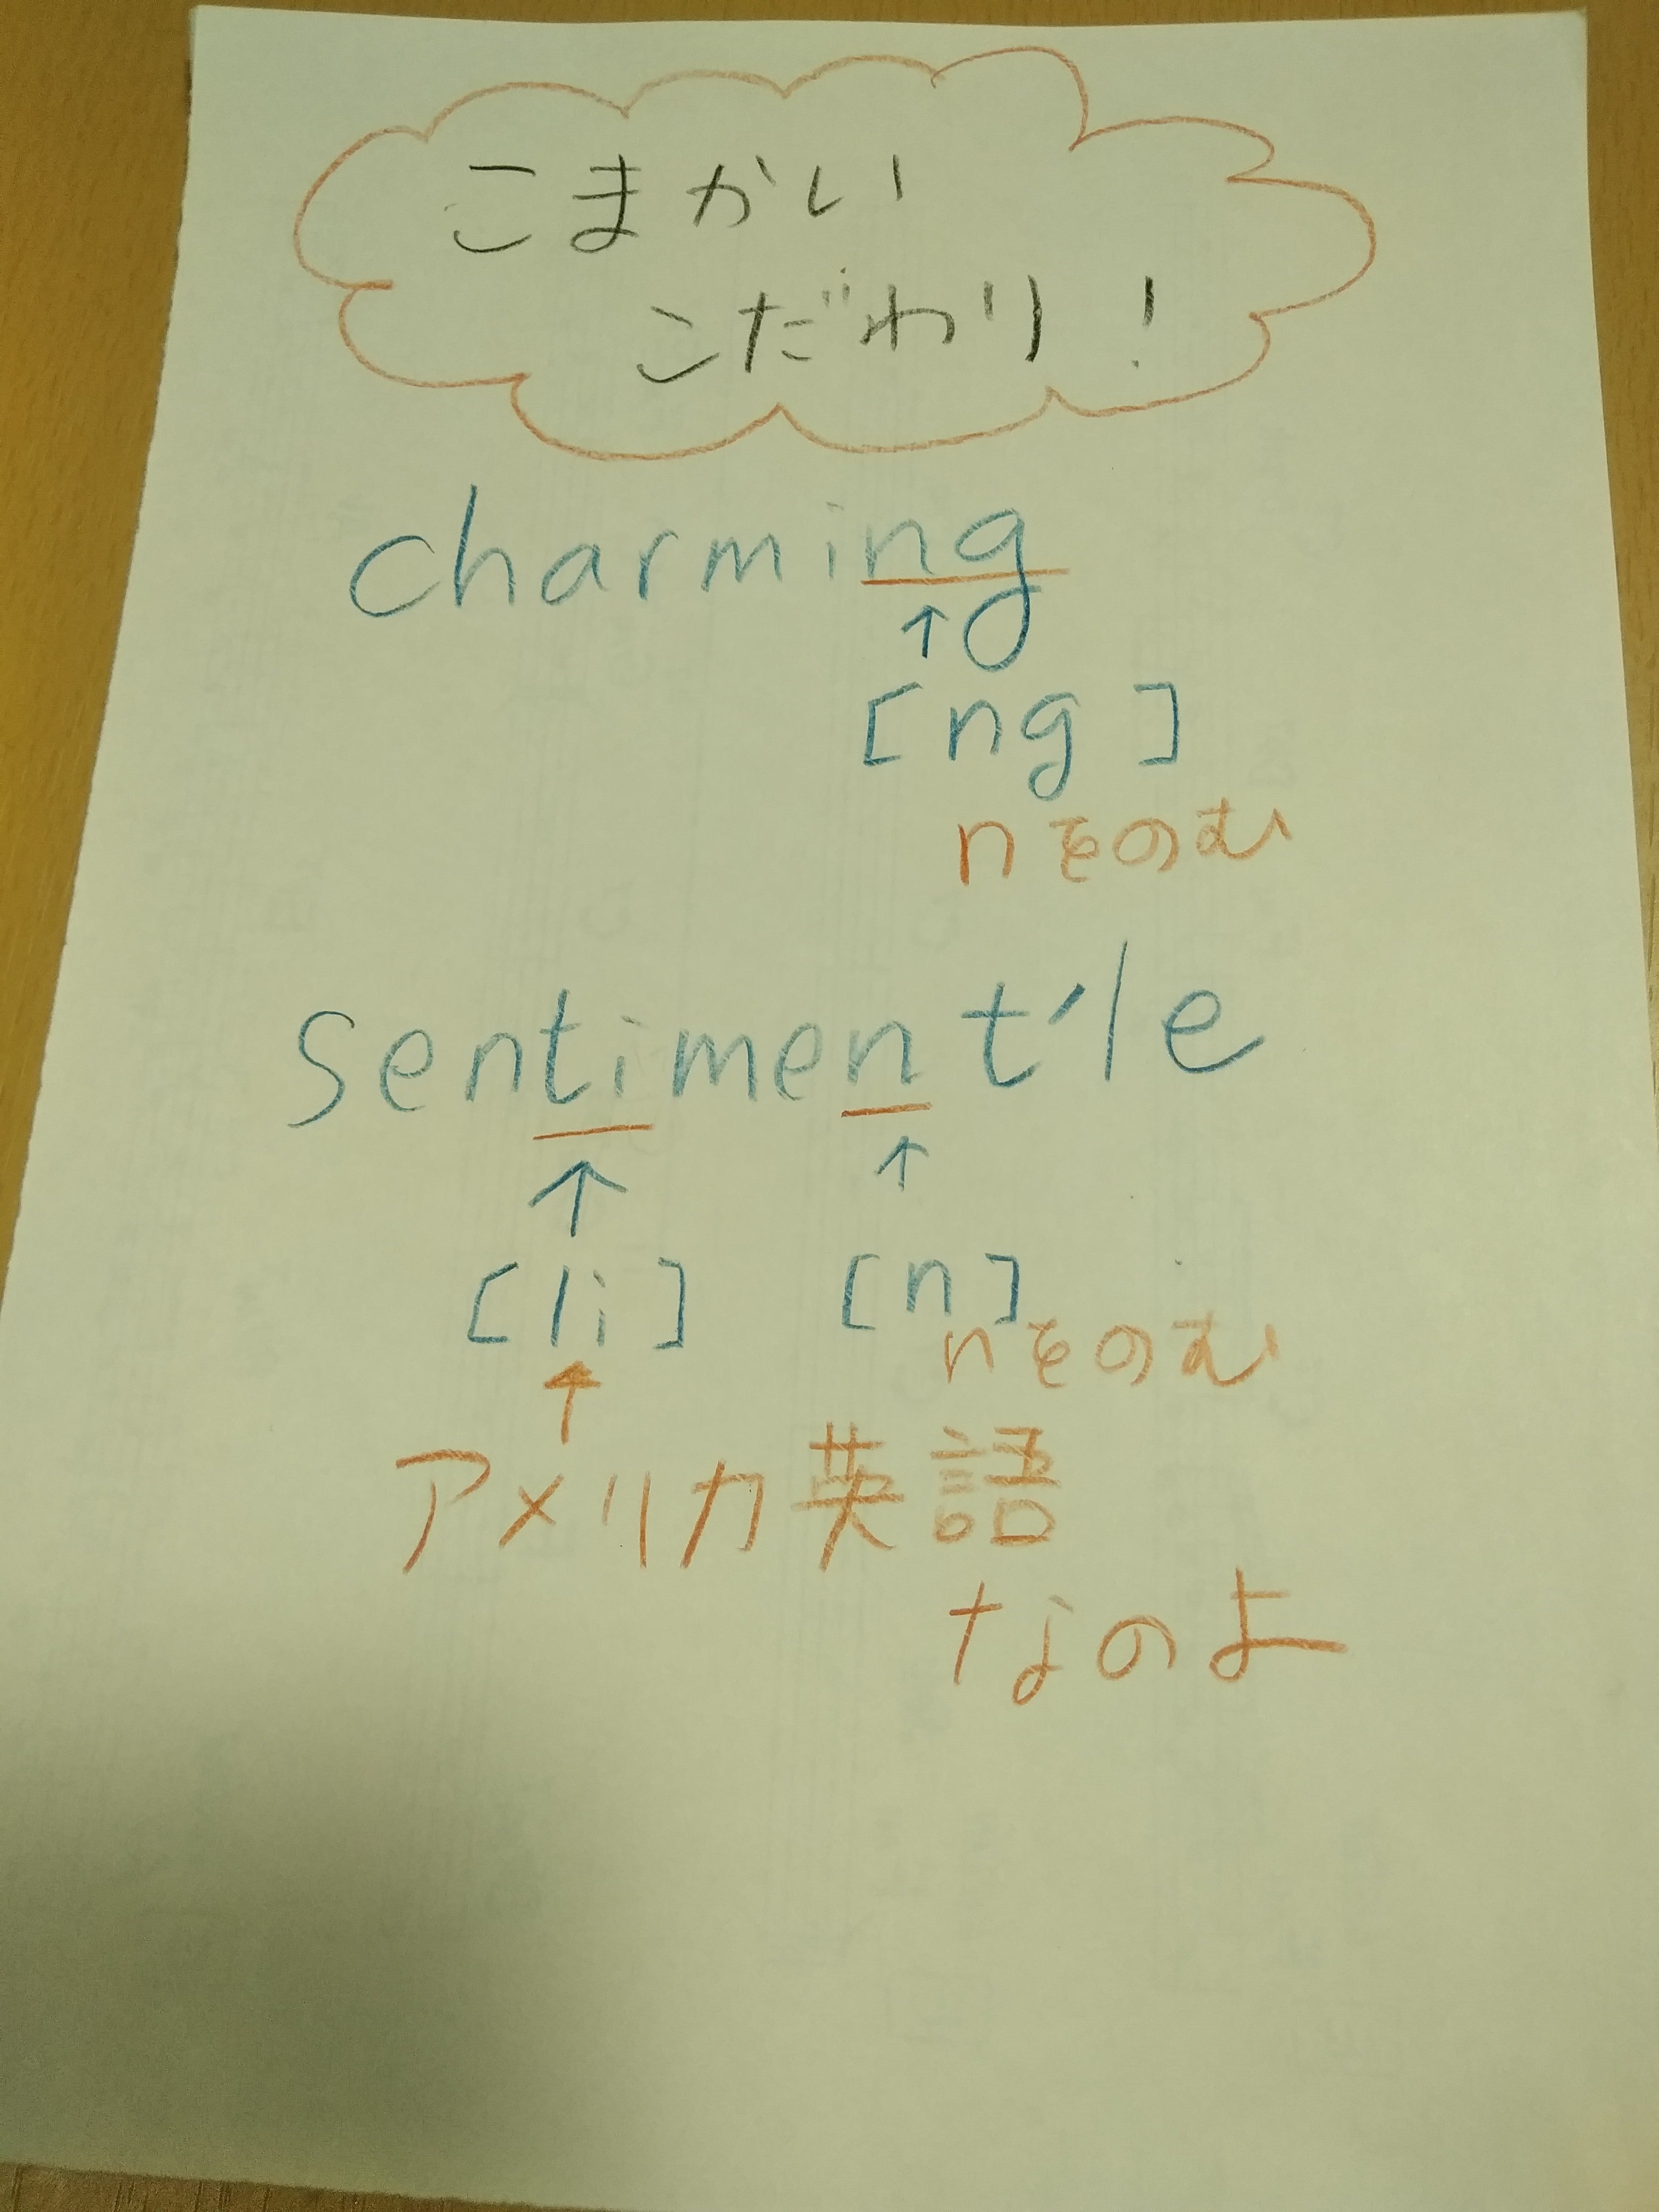 こまかい
こだわり!
charming
↑
[ng]
nをのむ
sentiment'le
↑ ↑
[li] [n]
nをのむ
↑
アメリカ英語
なのよ